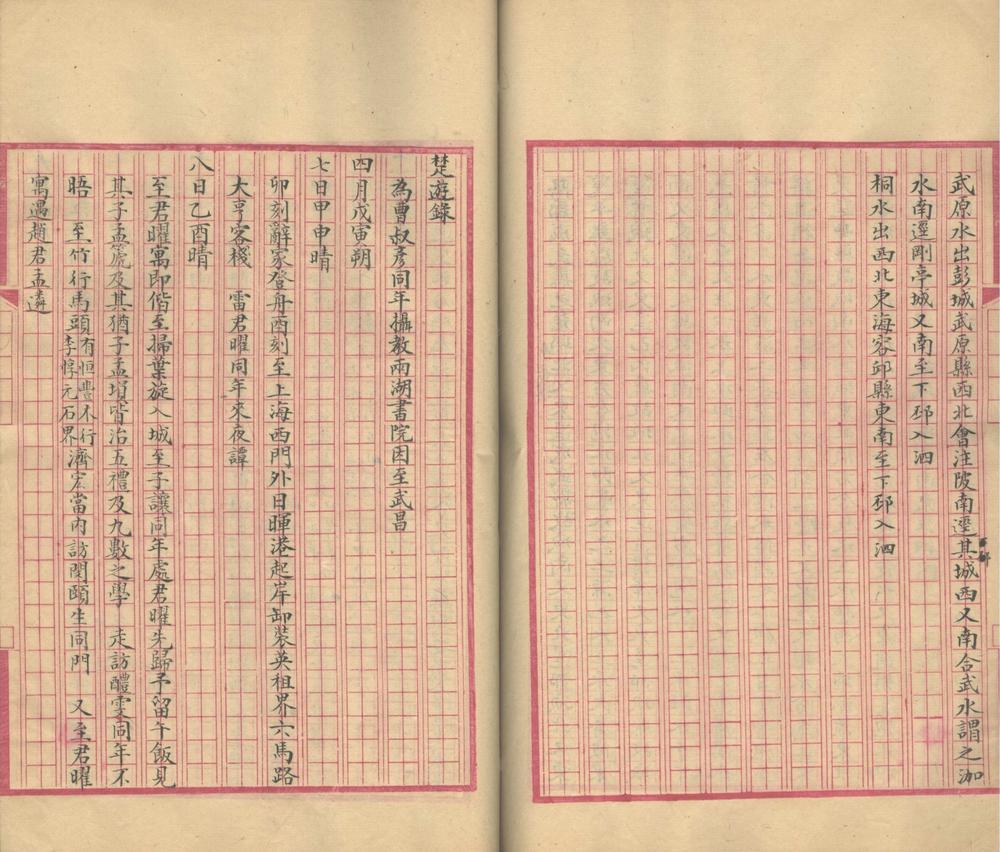 武原水出彭城武原縣西北會注陂南逕其城西又南合武水謂之泇
水南逕剛亭城又南至下邳入泗
桐水出西北東海容邱縣東南至下邳入泗
楚遊錄
為曹叔彥同年攝教兩湖書院因至武昌
四月戊寅朔
七日甲申晴
卯刻辭家登舟酉刻至上海西門外日暉港起岸卸裝英租界六馬路
大亨客棧　雷君曜同年來夜譚
八日乙酉晴
至君曜寓即偕至掃葉旋入城至子讓同年處君曜先歸予留午飯見
其子孟箎及其猶子孟塤皆治五禮及九數之學　走訪醴雯同年不
晤　至竹行馬頭有恒豐木行李惇元石界濟宏當內訪閔頤生同門　又至君曜
寓遇趙君孟遴